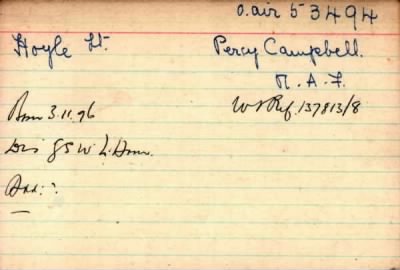 O.air 53494
Hoyle Lt. Percy Campbell.
R.A.F.
Born 3.11.96 WS Ref. 137813/8
Dis GSW L.
Add: ?